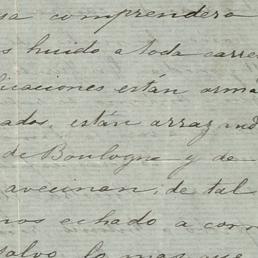 sa comprendera
s huido a toda carre
licaciones están arma
ados, están arrazando
de Boulogne y de
avecinan, de tal
mos echado a corr
salvo lo mas que